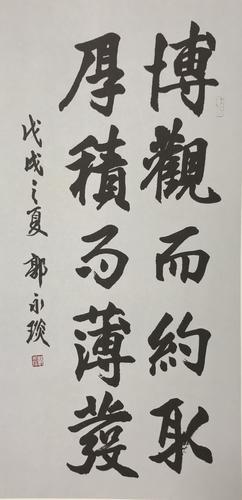 博觀而約取
厚積而薄發
戊戌之夏 郭永琰